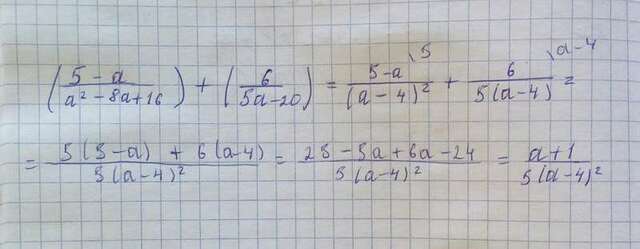 (5-a / a² - 8a + 16) + (6 / 5a-20) = 5-a \5 / (a-4)² + 6 \a-4 / 5(a-4) =
= 5(5-a) + 6(a-4) / 5(a-4)² = 25 - 5a + 6a - 24 / 5(a-4)² = a+1 / 5(a-4)²